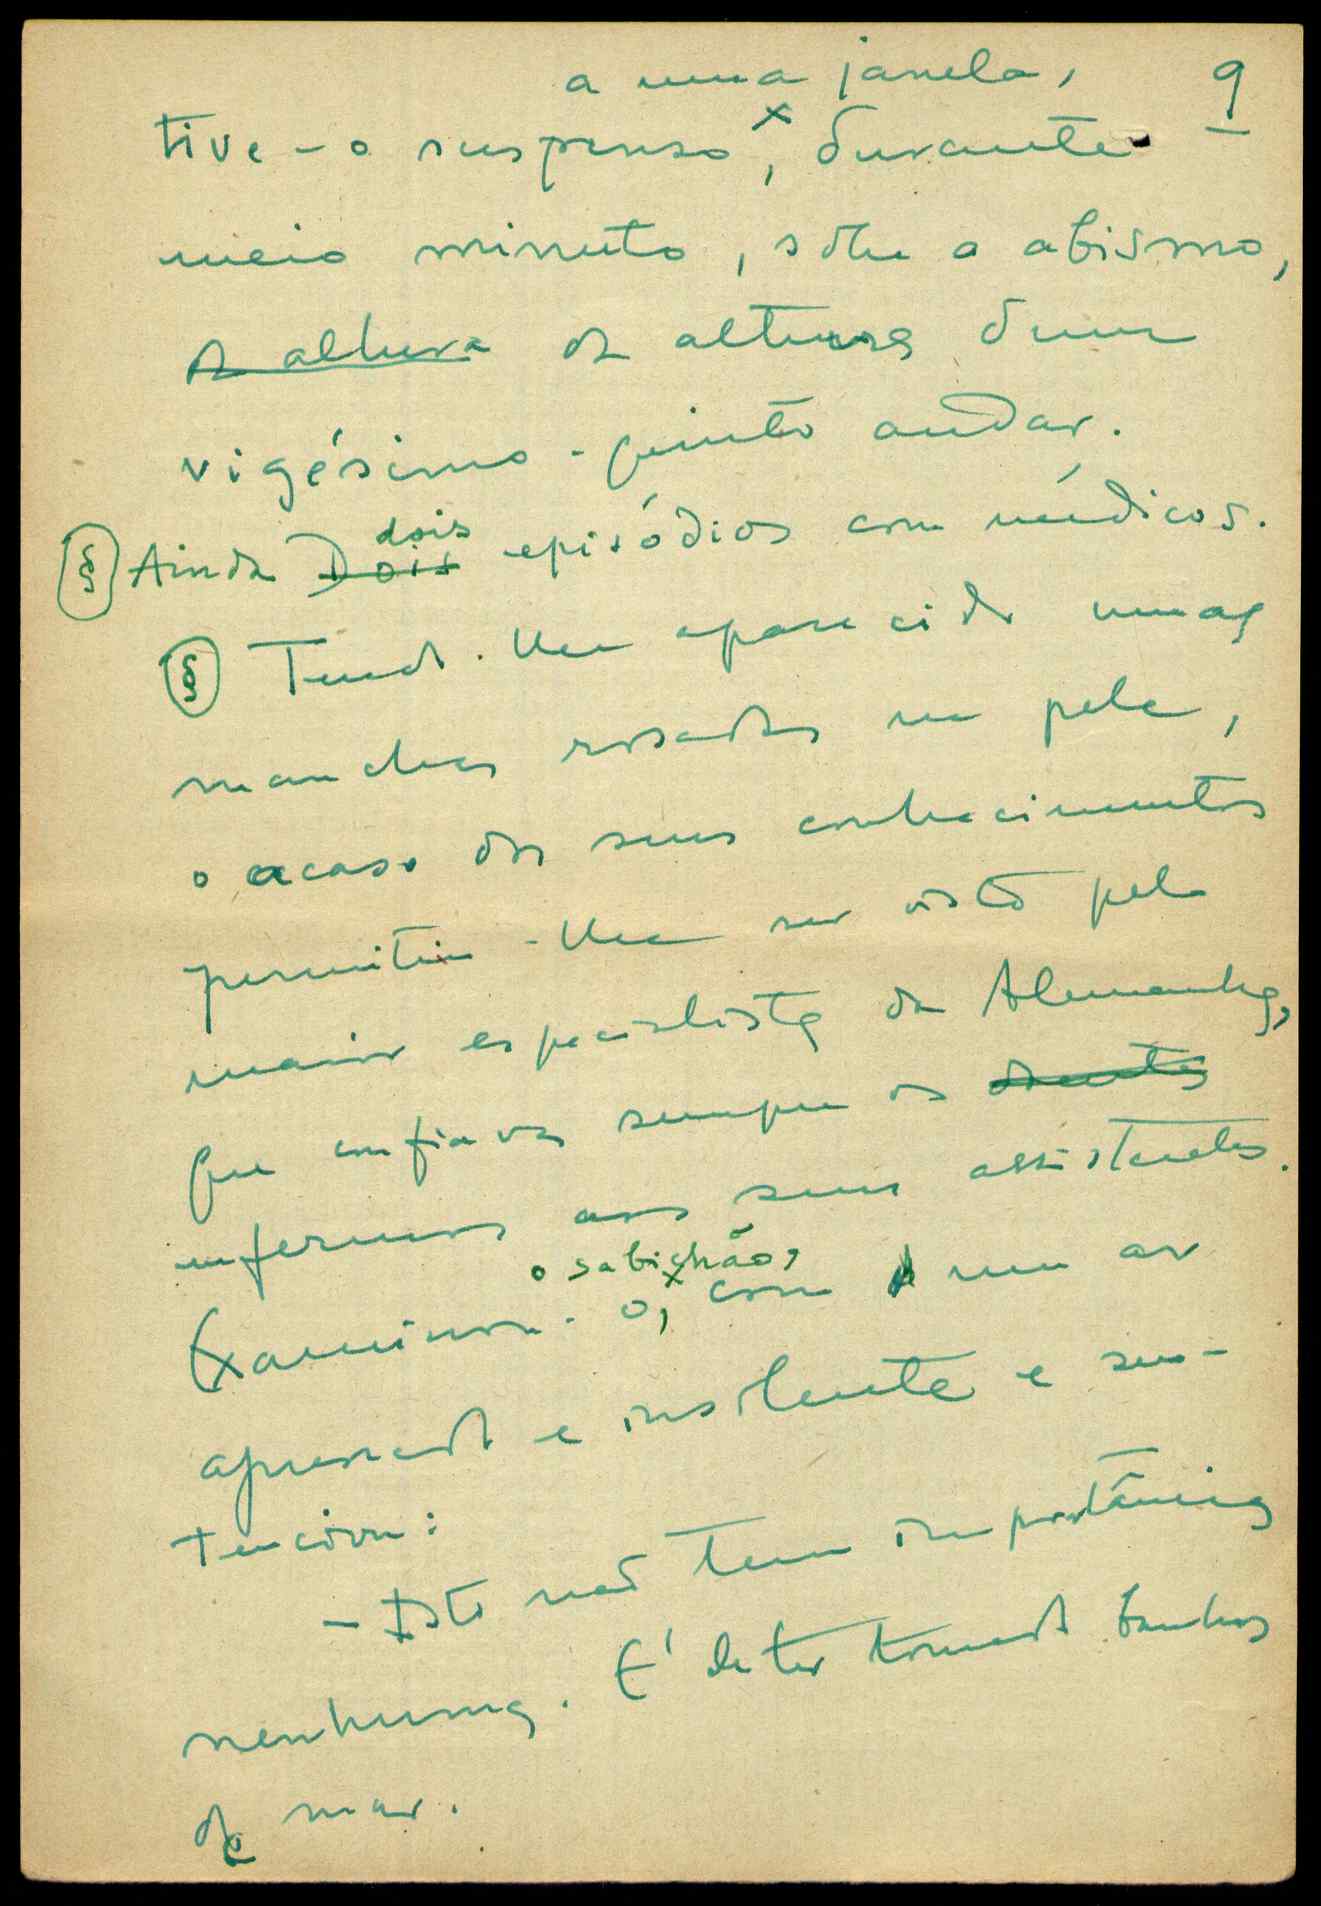 a uma janela, 9
tive-o suspenso, durante
meio minuto, sôbre o abismo,
da altura da altura dum
vigésimo-quinto andar.
dois
§ Ainda Dois episódios com médicos.
§ Tendo-lhe aparecido umas
manchas rosadas na pele,
o acaso dos seus conhecimentos
permitiu-lhe ser visto pelo
maior especialista da Alemanha,
que confiava sempre os doentes
enfermos aos seus assistentes.
o sabichão,
Examinou-o, com um ar
apressado e insolente e sen-
tenciou:
- Isto não tem importância
nenhuma. É de ter tomado banhos
de mar.